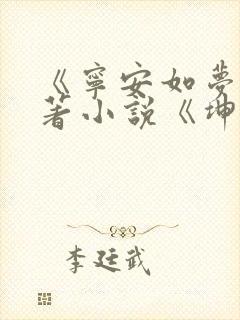 《寧安如夢
著小說《坤
李廷武